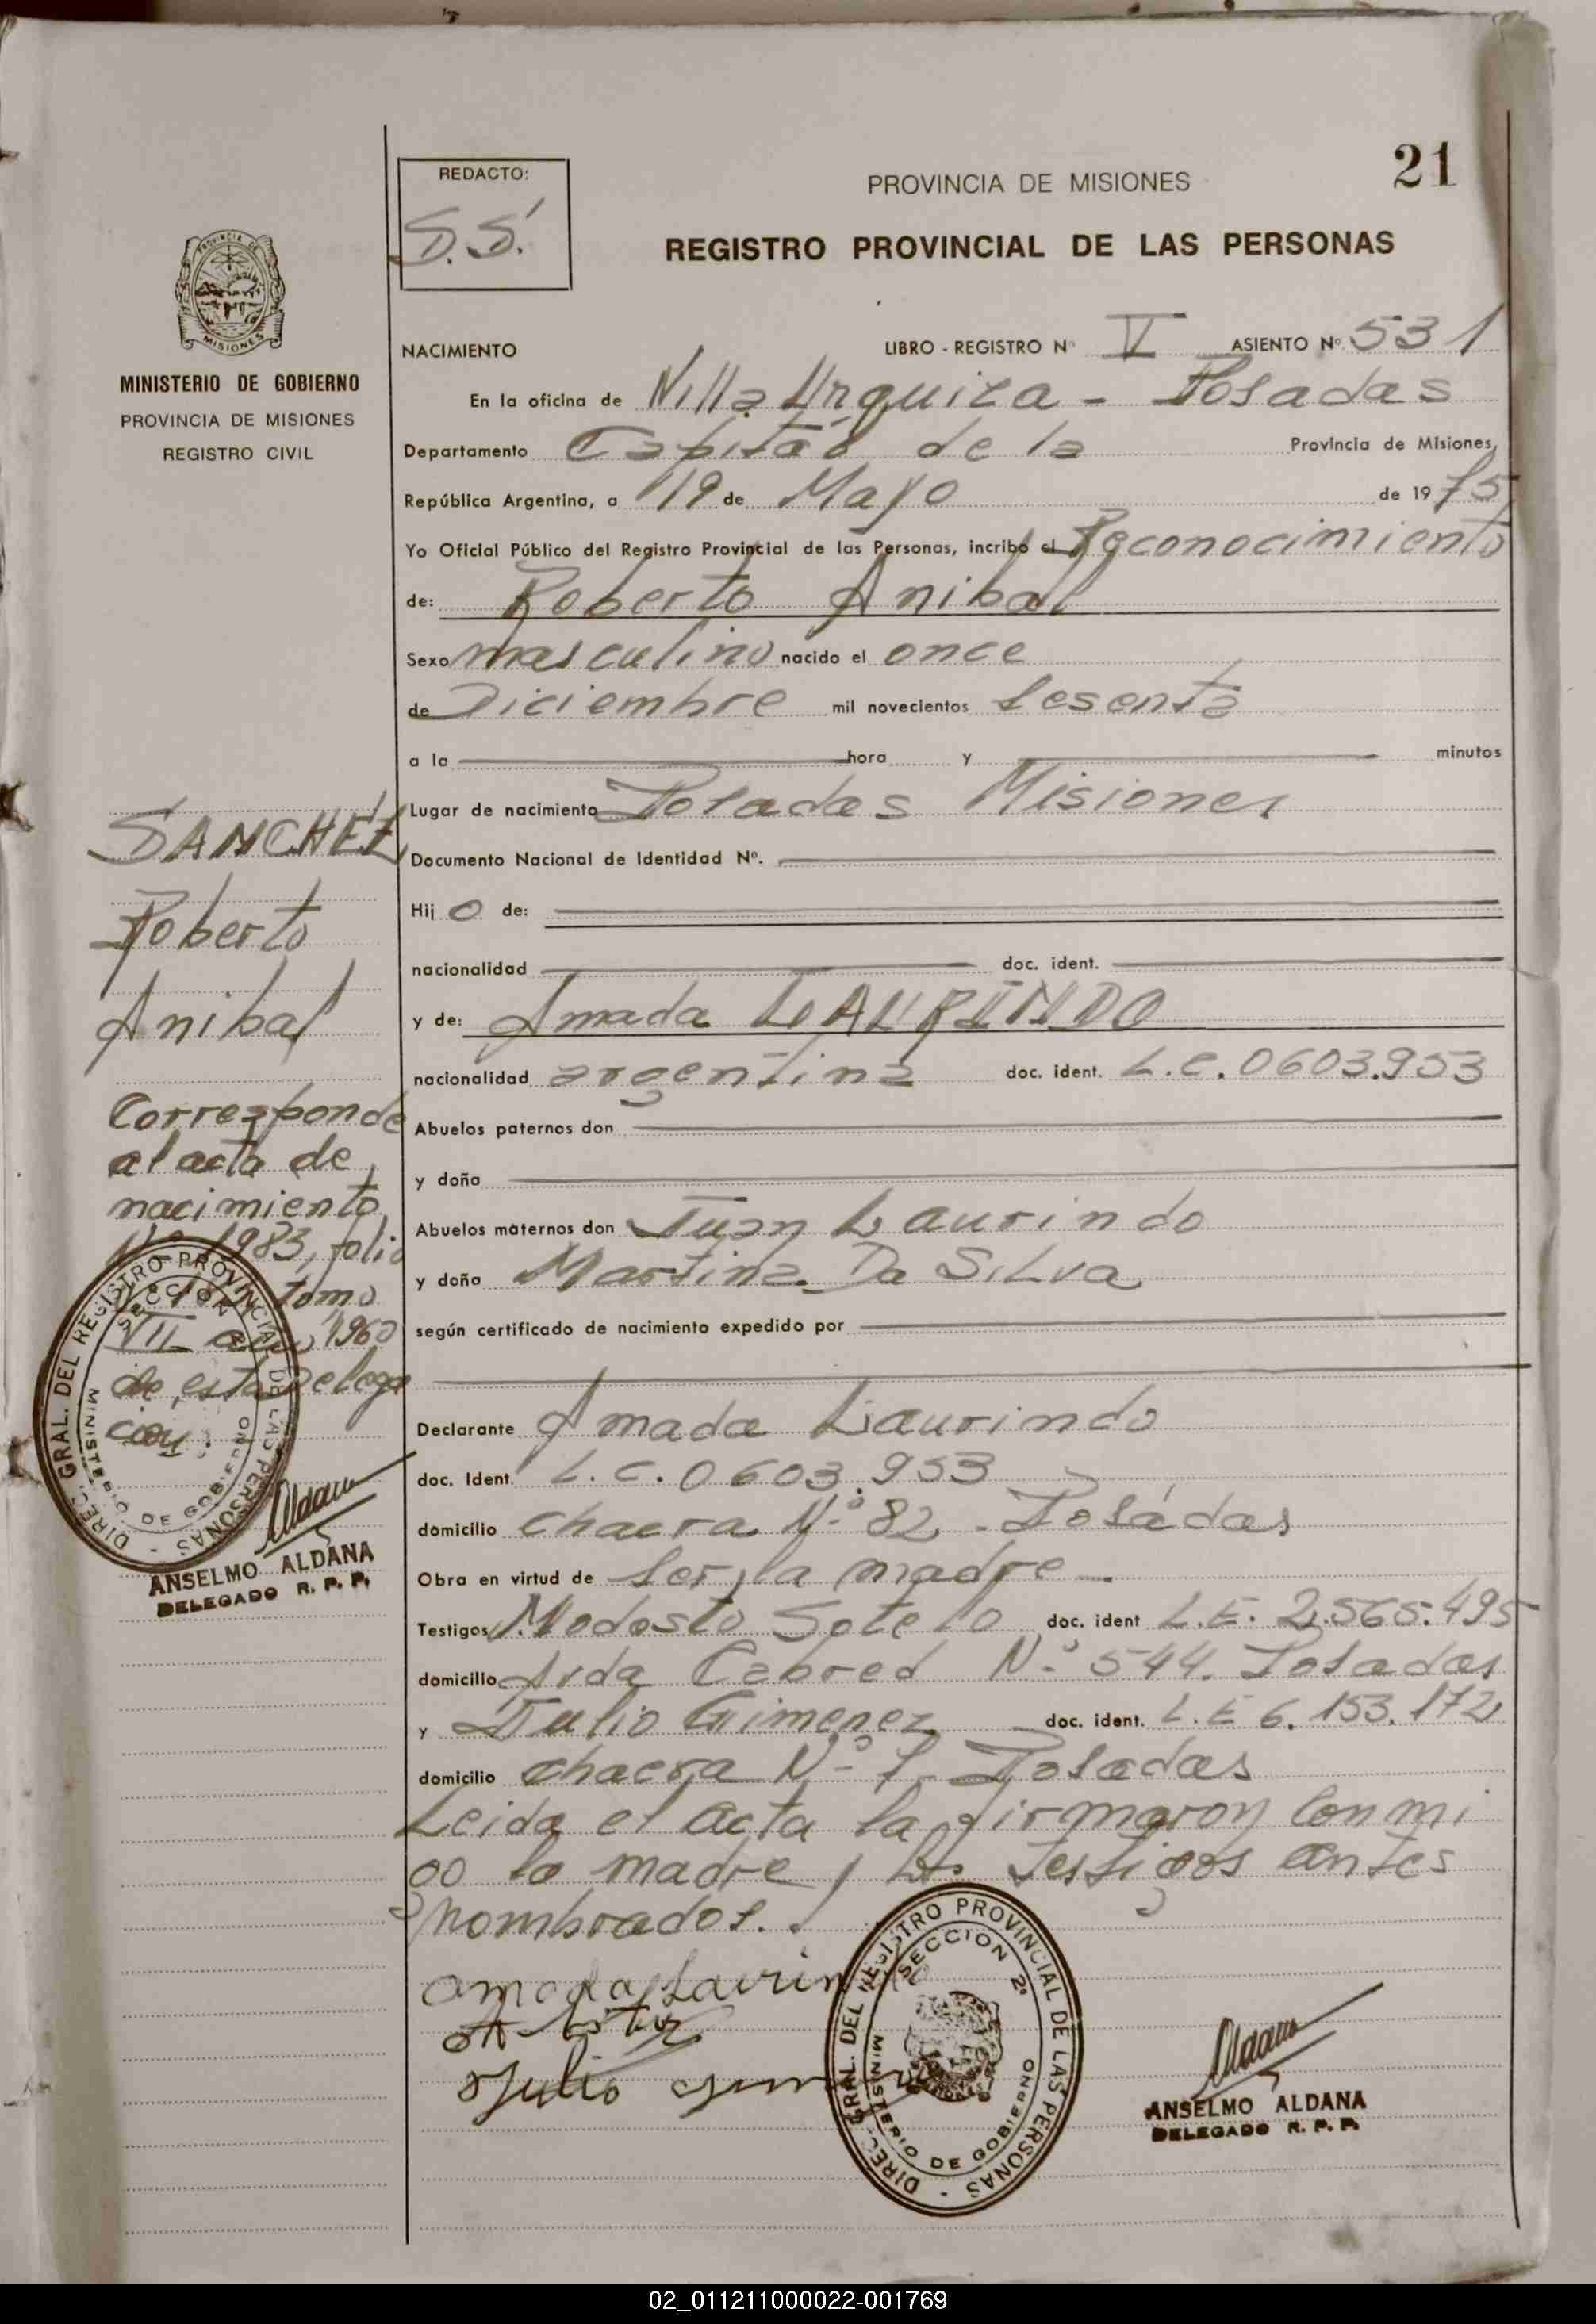 21
REDACTO:
S.S.
PROVINCIA DE MISIONES
REGISTRO PROVINCIAL DE LAS PERSONAS
MISIONES
MINISTERIO DE GOBIERNO
PROVINCIA DE MISIONES
REGISTRO CIVIL
NACIMIENTO LIBRO - REGISTRO Nº V ASIENTO Nº 531
En la oficina de Villa Urquiza - Posadas
Departamento Capital de la Provincia de Misiones,
República Argentina, a 19 de Mayo de 1975
Yo Oficial Público del Registro Provincial de las Personas, incribo el Reconocimiento
de: Roberto Anibal
Sexo masculino nacido el once
de Diciembre mil novecientos sesenta
a la hora y minutos
Lugar de nacimiento Posadas Misiones
Documento Nacional de Identidad Nº.
Hij o de:
nacionalidad doc. ident.
y de: Amada LAURINDO
nacionalidad argentina doc. ident. L.C. 0603.953
Abuelos paternos don
y doña
Abuelos maternos don Juan Laurindo
y doña Martina Da Silva
según certificado de nacimiento expedido por
Declarante Amada Laurindo
doc. Ident. L.C. 0603.953
domicilio chacra Nº 82 - Posadas
Obra en virtud de ser la madre
Testigos Modesto Sotelo doc. ident L.E. 2.565.495
domicilio Avda Cabred Nº 544. Posadas
y Julio Gimenez doc. ident. L.E 6.153.172
domicilio chacra Nº 7 Posadas
Leida el acta la firmaron conmi
go la madre y los testigos antes
nombrados.
SANCHEZ
Roberto
Anibal
Corresponde
al acta de
nacimiento
Nº 1983, folio
tomo
VII año 1960
de esta Delega
cion
DIREC. GRAL. DEL REGISTRO PROVINCIAL DE LAS PERSONAS
SECCION
MINISTERIO DE GOBIERNO
Aldana
ANSELMO ALDANA
DELEGADO R. P. P.
amada Laurin
Julio
DIREC. GRAL. DEL REGISTRO PROVINCIAL DE LAS PERSONAS
SECCION 2ª
MINISTERIO DE GOBIERNO
Aldana
ANSELMO ALDANA
DELEGADO R. P. P.
02_011211000022-001769